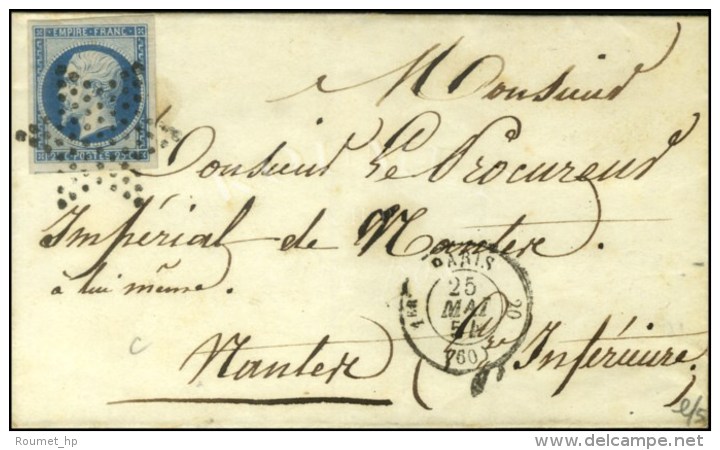 EMPIRE FRANC.
POSTES
Monsieur
Monsieur Le Procureur
Impérial de Nantes.
à lui même.
PARIS
1ER
25
MAI
20
(60)
Nantes (Inférieure.)
c
Roumet_hp
delcampe.net